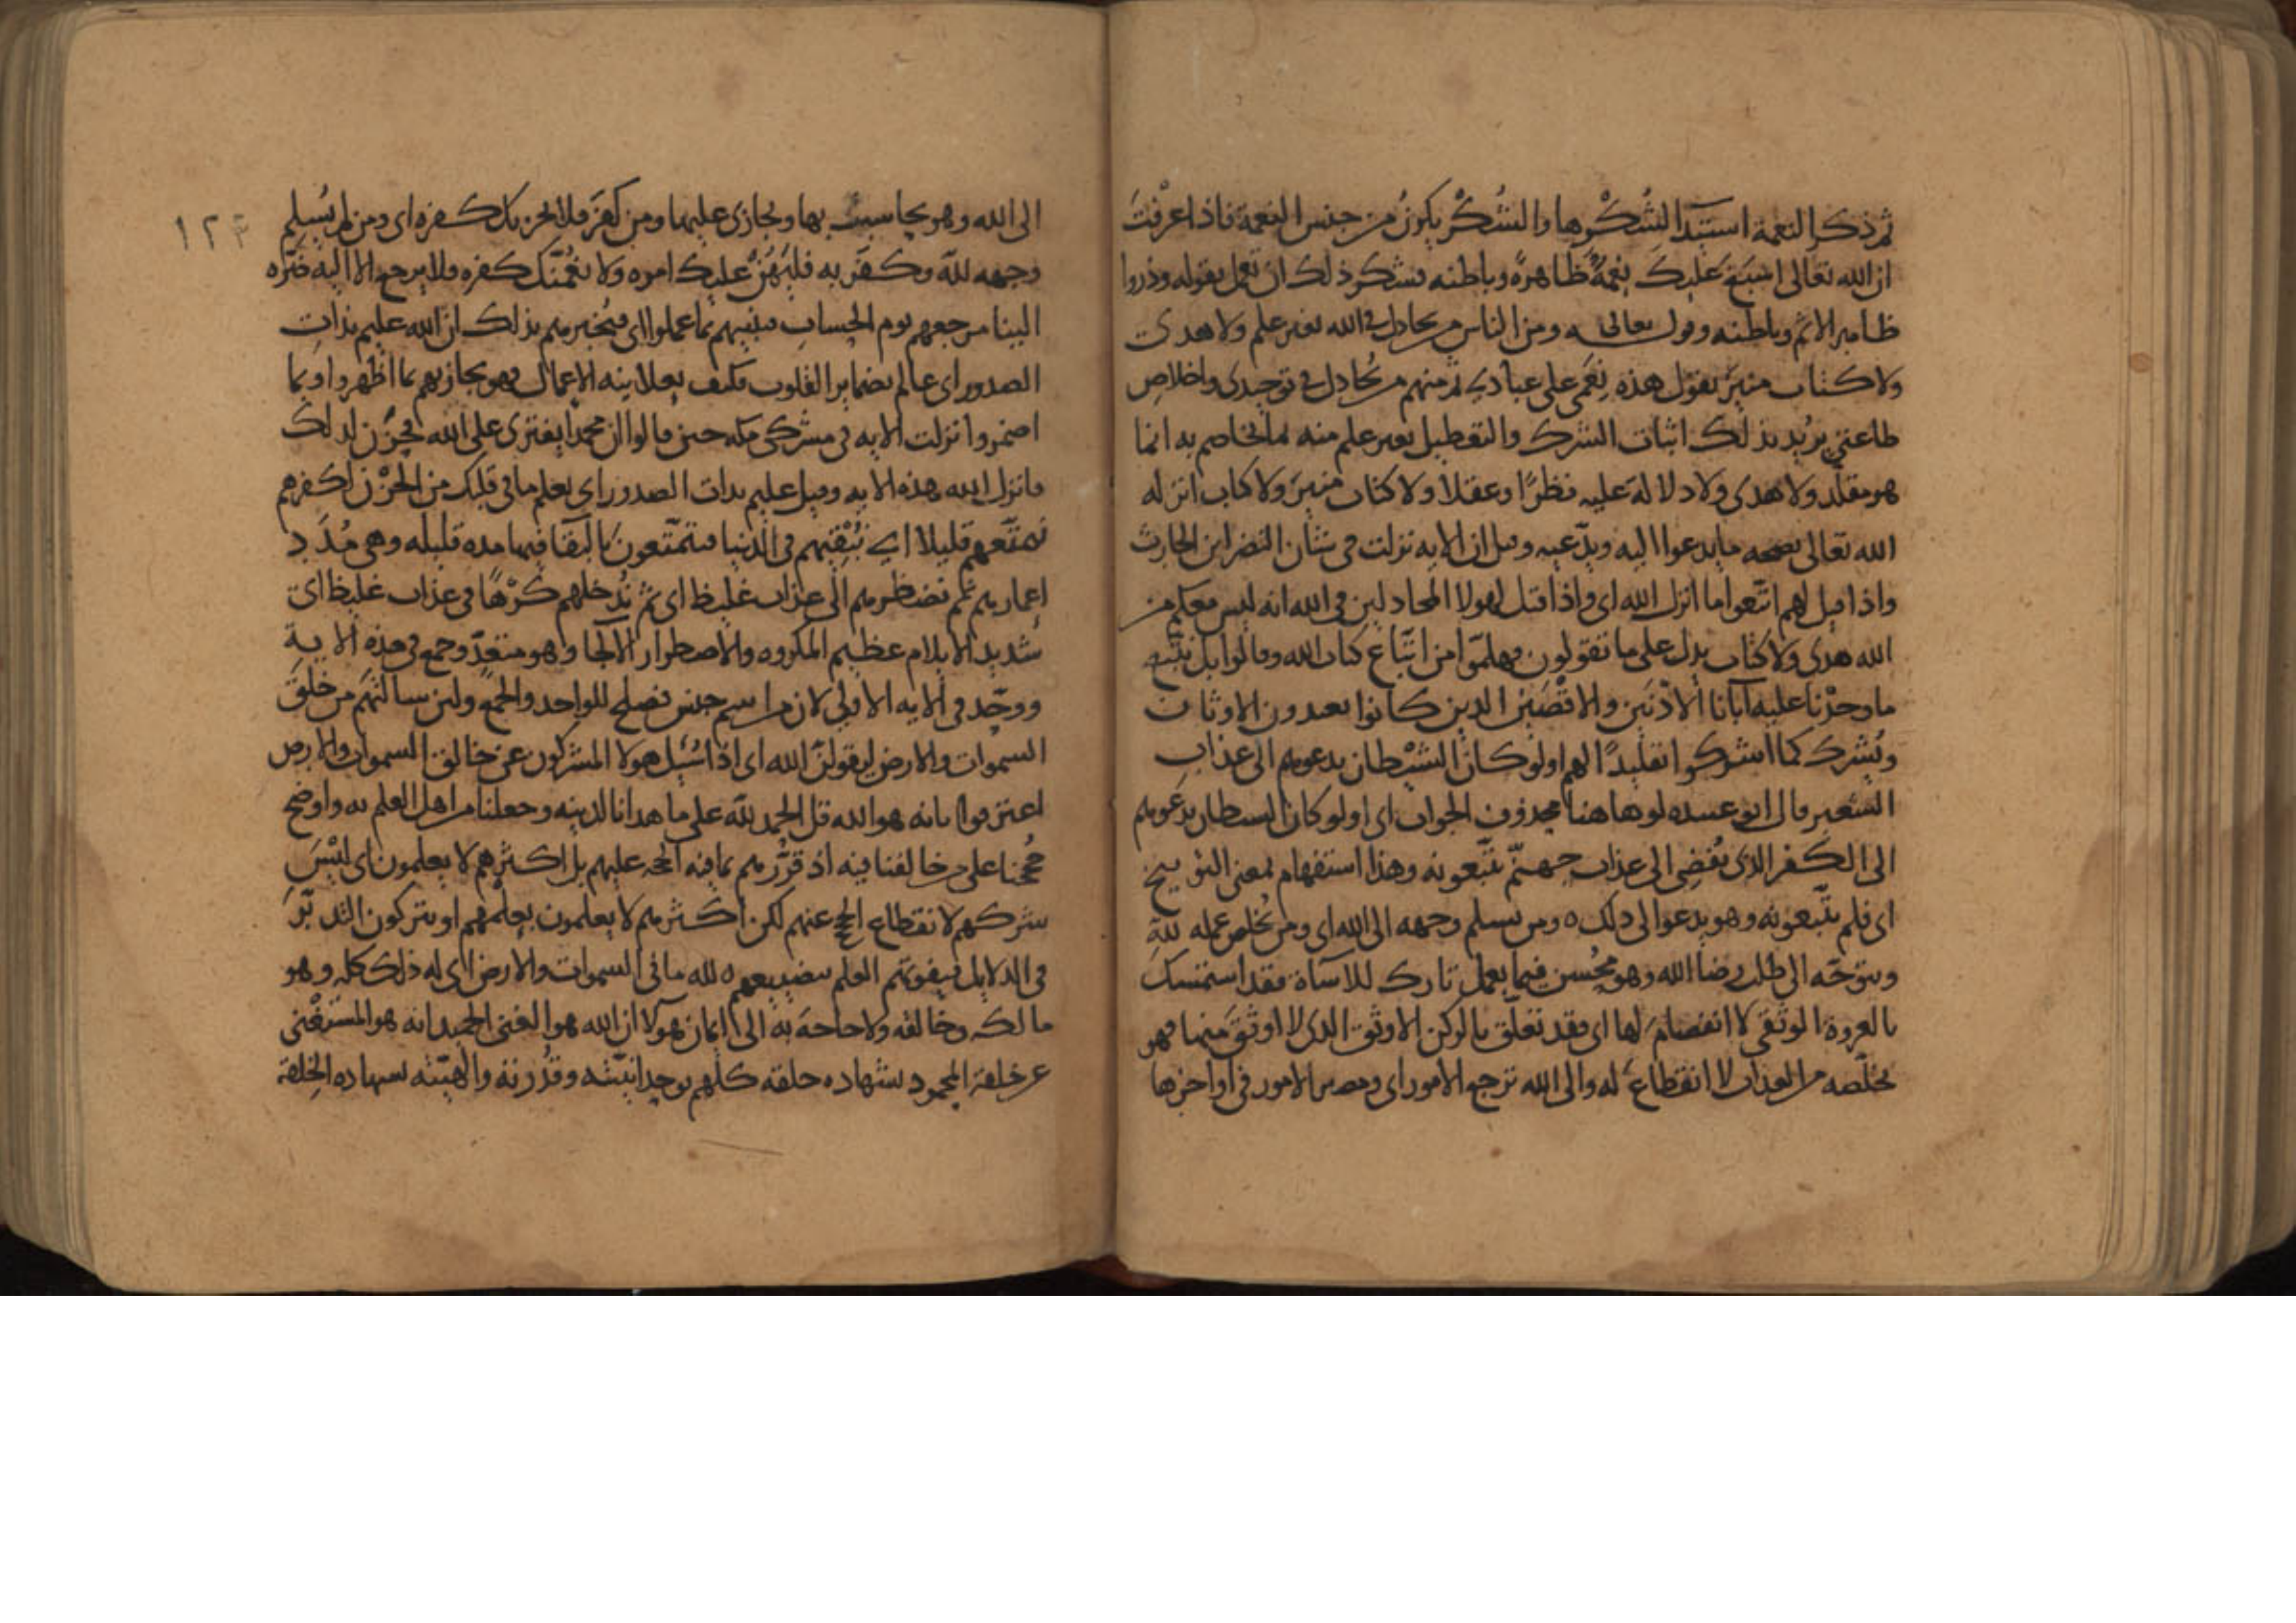 ثم ذكر النعمة استيدا لشُكْرها والشُكْر يكونُ من جنس النعمة فاذا عرفْتَ
ان الله تعالى اسبَغَ عليك نعمةً ظاهرةً وباطنه فشكر ذلك ان تعمل بقوله وذروا
ظاهر الاثم وباطنه وقول تعالى ومن الناس من يجادل في الله بغير علم ولا هدى
ولا كتاب منير يقول هذه نِعَمى على عبادي ثم منهم من يُجادل في توحيدى واخلاص
طاعتي يريد بذلك اثبات الشرك والتعطيل بغير علم منه بما يخاصم به انما
هو مقلد ولا هدى ولا دلالة عليه نظرًا وعقلا ولا كتاب منير ولا كتاب انزله
الله تعالى بصحه ما يدعوا اليه ويدّعيه وقيل ان الايه نزلت في شان النضر ابن الحارث
واذا قيل لهم اتبعوا ما انزل الله اى واذا قيل لهولا المجادلين في الله انه ليس معكم من
الله هدى ولا كتاب يدل على ما تقولون فهلمّوا من اتّباع كتاب الله وقالوا بل نتّبع
ما وجدْنا عليه آبانا الأدْنَين والاقْصَين الذين كانوا يعبدون الاوثان
ونُشرك كما اشركوا تقليدًا لهم اولو كان الشيْطان يدعوهم الى عذاب
السّعير قال ابو عبيده لو هاهنا محذوف الجواب اى اولو كان الشيطان يدعوهم
الى الكفر الذى يُفضِى الى عذاب جهنّم يتّبعونه وهذا استفهام بمعنى التوبيخ
اى فلم يتّبعونه وهو يدعوا الى ذلك ه ومن يسلم وجهه الى الله اى ومن يُخلص عمله للهِ
ويتوجّه الى طلب رضا الله وهو مُحْسن فيما يعمل تارك للاسآة فقد استمسك
بالعروة الوثقى لا انفصام لها اى فقد تعلّق بالركن الاوثق الذى لا اوثق منها فهو
يخلّصه من العذاب لا انقطاع له والى الله ترجع الامور اى ومصير الامور في اواخرها
الى الله وهو يحاسب بها ويجازى عليها ومن كفر فلا يحزنك كفره اى ومن لم يُسلم
وجهه للّه وكفَر به فليَهُنْ عليك امره ولا يغُمّنّك كفره فلا مرجع الا اليه فترّه
الينا مرجعهم يوم الحساب فننبيهم بما عملوا اى فيُخبرهم بذلك ان الله عليم بذات
الصدور اى عالم بضماير القلوب فكيف بعلانيه الاعمال فهو يجازيهم بما اظهروا وبما
اضمروا نزلت الايه في مشركى مكه حين قالوا ان محمدًا يفترى على الله فحزن لذلك
فانزل الله هذه الايه وقيل عليم بذات الصدور اى يعلم ما في قلبك من الحُزْن لكفرهم
نمتّعهم قليلا اي نُبْقيهم في الدنيا فيتمتّعون بالبقا فيها مده قليله وهي مُدَد
اعمارهم ثم نضطرهم الى عذاب غليظ اى ثم نُدخلهم كرْهًا في عذاب غليظ اى
شديد الايلام عظيم المكروه والاضطرار الالجا وهو متعدّ وجمع في هذه الايه
ووحّد في الايه الاولى لان من اسم جنس تصلح للواحد والجمع ولين سالتهم من خلق
السموات والارض ليقولنّ الله اى اذا سُئل هولا المشركون عن خالق السموات والارض
اعترفوا بانه هو الله قل الحمد للّه على ما هدانا لدينه وجعلنا من اهل العلم به واوضح
حُججنا على من خالفنا فيه اذ قرّرهم بما فيه الحجه عليهم بل اكثرهم لا يعلمون اى ليْسَ
شركهم لانقطاع الحجج عنهم لكن اكثرهم لا يعلمون بعلمهم او يتركون التدبّرَ
في الدلايل فيفوتهم العلم بتضييعهم ه لله ما في السموات والارض اى له ذلك كله وهو
مالكه وخالقه ولا حاجة به الى ايمان هوآلا ان الله هو الغنى الحميد انه هو المستغنى
عن خلقه المحمود بشهاده خلقه كلهم بوحدانيّته وقُدْرته والهيّته بشهاده الخلقة